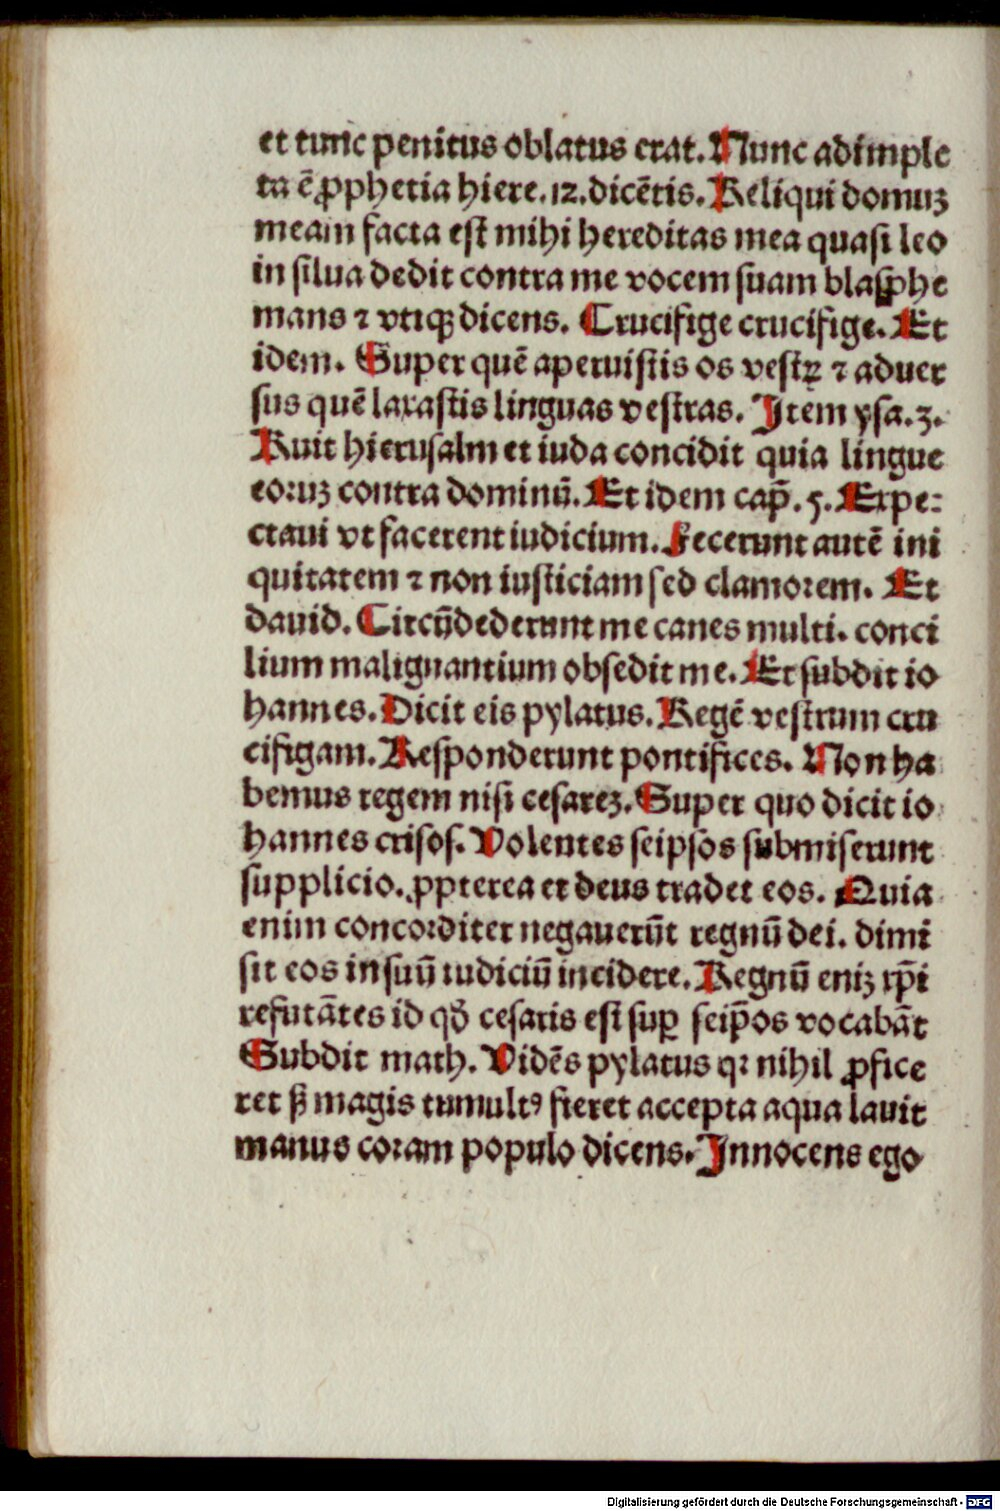 et tunc penitus oblatus erat. Nunc adimple
ta ē ꝓphetia hiere. 12. dicētis. Reliqui domuꝫ
meam facta est mihi hereditas mea quasi leo
in silua dedit contra me vocem suam blasphe
mans ⁊ vtiqꝫ dicens. Crucifige crucifige. Et
idem. Super quē aperuistis os vestꝝ ⁊ aduer
sus quē laxastis linguas vestras. Item ysa. 3.
Ruit hierusalm et iuda concidit quia lingue
eoruꝫ contra dominū. Et idem cap̄. 5. Expe-
ctaui vt facerent iudicium. Fecerunt autē ini
quitatem ⁊ non iusticiam sed clamorem. Et
dauid. Circūdederunt me canes multi. conci
lium malignantium obsedit me. Et subdit io
hannes. Dicit eis pylatus. Regē vestrum cru
cifigam. Responderunt pontifices. Non ha
bemus regem nisi cesareꝫ. Super quo dicit io
hannes crisos. Volentes seipsos submiserunt
supplicio. ꝓpterea et deus tradet eos. Quia
enim concorditer negauerūt regnū dei. dimi
sit eos in suū iudiciū incidere. Regnū eniꝫ xp̄i
refutātes id qđ cesaris est suꝑ seip̄os vocabāt
Subdit math. Vidēs pylatus qꝛ nihil ꝓfice
ret sꝫ magis tumultꝰ fieret accepta aqua lauit
manus coram populo dicens. Innocens ego
Digitalisierung gefördert durch die Deutsche Forschungsgemeinschaft - DFG